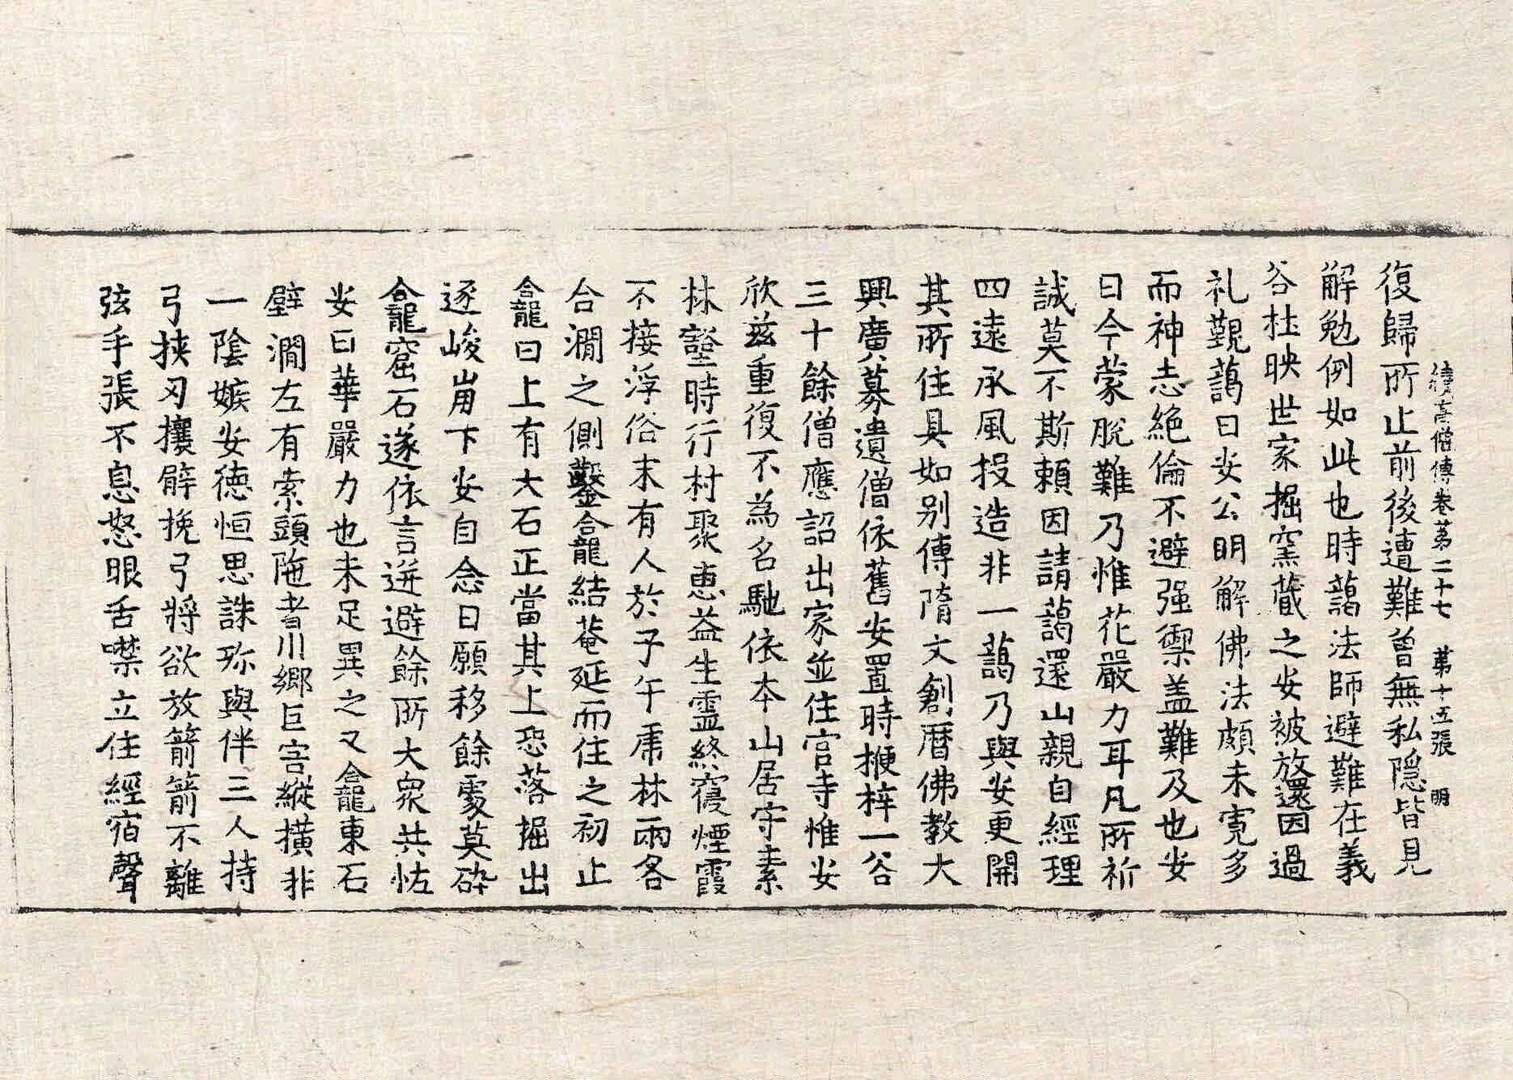 續高僧傳卷第二十七 第十五張 明
復歸所止前後遭難曾無私隱皆見
解勉例如此也時藹法師避難在義
谷杜映世家掘窯藏之安被放還因過
礼覲藹曰安公明解佛法頗未寬多
而神志絶倫不避强禦盖難及也安
曰今蒙脫難乃惟花嚴力耳凡所祈
誠莫不斯賴因請藹還山親自經理
四遠承風投造非一藹乃與安更開
其所住具如别傳隋文創曆佛教大
興廣募遺僧依舊安置時梗梓一谷
三十餘僧應詔出家並住官寺惟安
欣兹重復不為名馳依本山居守素
林壑時行村聚惠益生靈終寢煙霞
不接浮俗末有人於子午虎林兩谷
合澗之側鑿龕結菴延而住之初止
龕日上有大石正當其上恐落掘出
逐峻崩下安自念曰願移餘處莫碎
龕窟石遂依言迸避餘所大衆共怪
安曰華嚴力也未足異之又龕東石
壁澗左有索頭陁者川鄉巨害縱橫非
一陰嫉安德恒思誅殄與伴三人持
弓挾刃攘臂挽弓將欲放箭箭不離
弦手張不息怒眼舌噤立住經宿聲